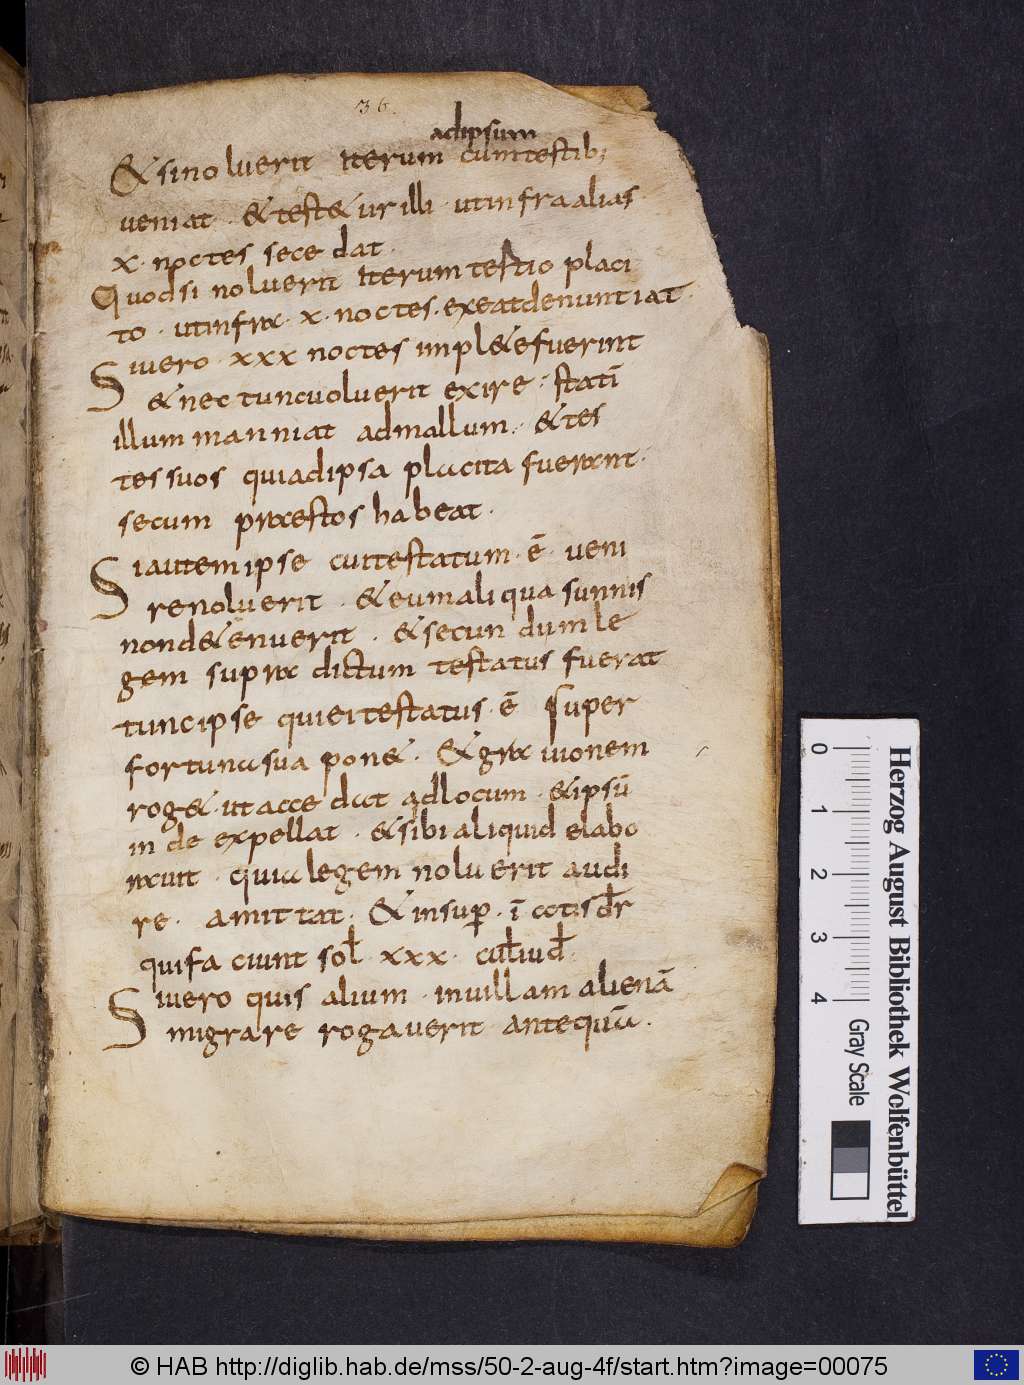 36.
adipsum
& sinoluerit iterum cum testib;
ueniat · & test&ur illi · ut infra alias
x · noctes sece dat ·
Quod si noluerit Iterum testio placi
to · ut infra · x · noctes · exeat denuntiat ·
Siuero · xxx noctes impl&e fuerint
& nec tunc uoluerit exire · statī
illum manniat ad mallum · & tes
tes suos qui adipsa placita fuerant ·
secum praestos habeat ·
Si autem ipse cui testatum · ē · ueni
re noluerit · & eum aliqua sunnis
non d&enuerit · & secundum le
gem supra dictum testatus fuerat
tunc ipse qui ei testatus · ē super
fortuna sua pon& · & gra uionem
rog& · ut acce dat ad locum · & ipsū
in de expellat · & sibi aliquid elabo
rauit · quia legem noluerit audi
re · amittat · & insup · ī cotis dr
qui fa ciunt sol xxx · cul iud ·
Siuero quis alium · in uillam alienā
migrare rogauerit antequā ·
0 1 2 3 4
Gray Scale
Herzog August Bibliothek Wolfenbüttel
© HAB http://diglib.hab.de/mss/50-2-aug-4f/start.htm?image=00075